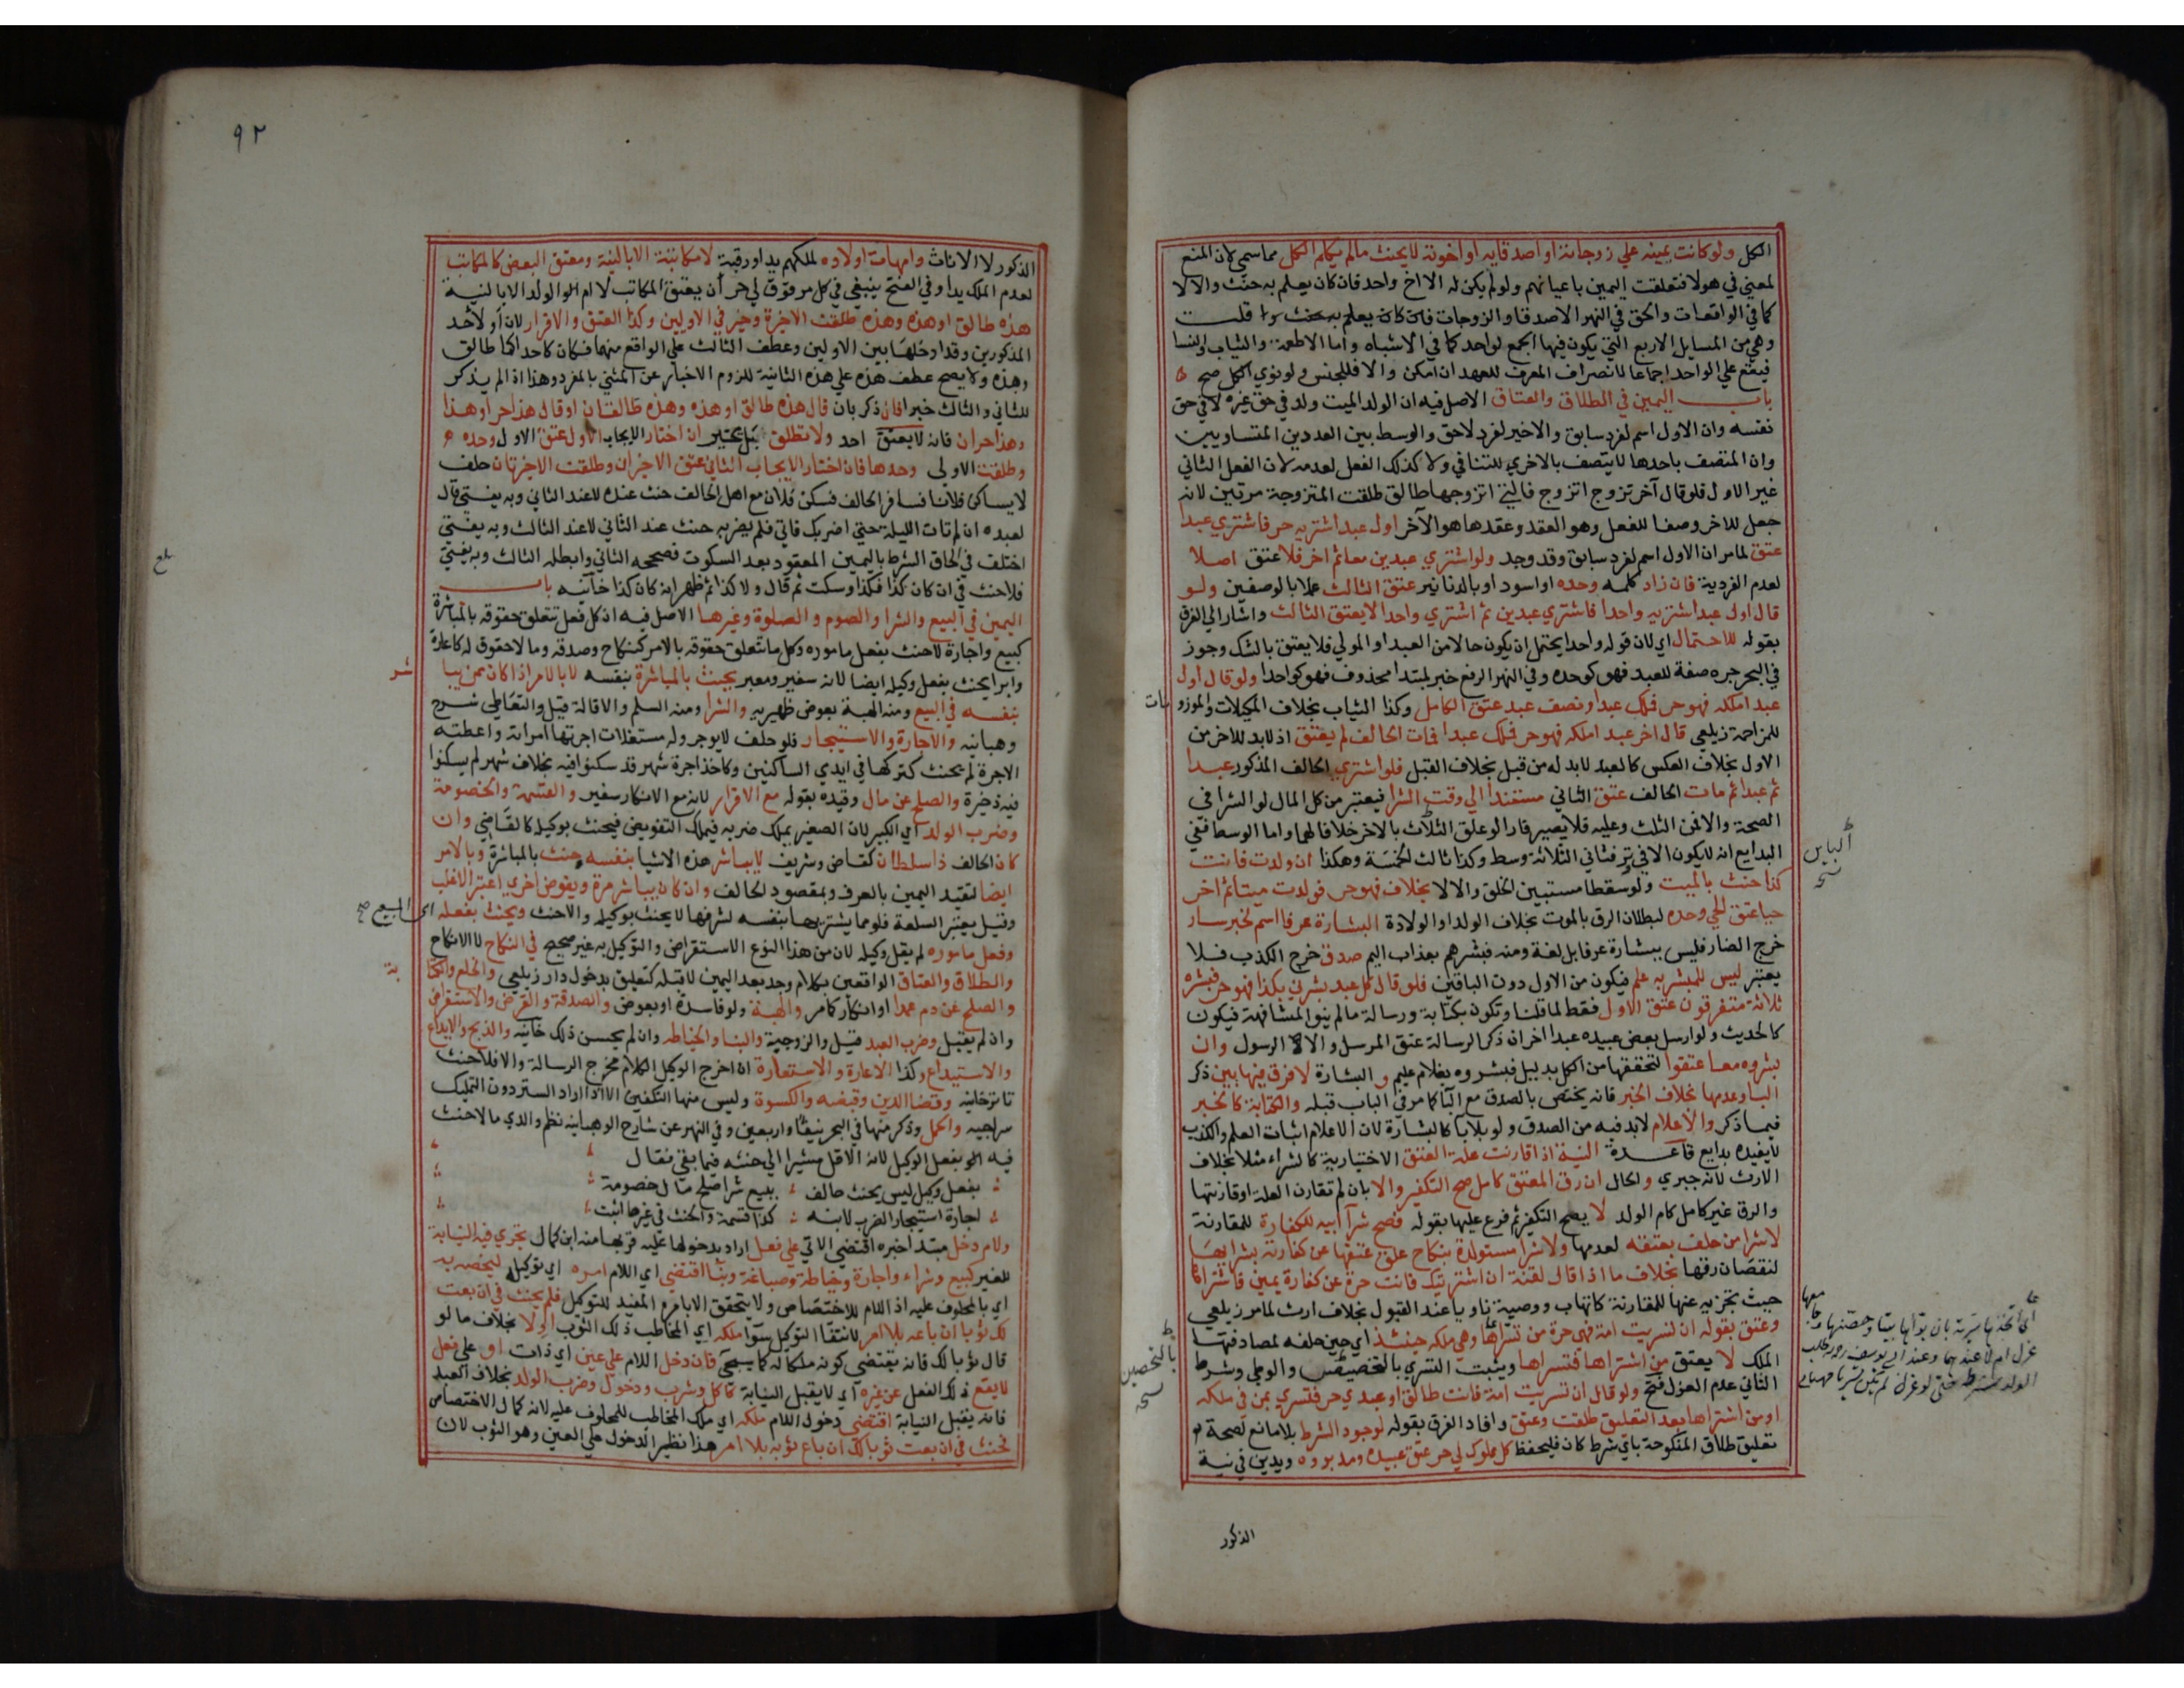 الكل ولو كانت يمينه علي زوجاته او اصدقايه او اخوته لا يحنث مالم يكلم الكل مما سمي لان المنع
لمعني في هولا فتعلقت اليمين باعيانهم ولو لم يكن له الا اخ واحد فان كان يعلم به حنث والا لا
كما في الواقعات والحق في النهر الاصدقا والزوجات قلت
وهي من المسايل الاربع التي يكون فيها الجمع لواحد كما في الاشباه واما الاطعمة والثياب والنسا
فيقع علي الواحد اجماعا لانصراف المعرف للعهد ان امكن والا فللجنس ولو نوي الكل صح
باب اليمين في الطلاق والعتاق الاصل فيه ان الولد الميت ولد في حق غيره لا في حق
نفسه وان الاول اسم لفرد سابق والاخير لفرد لاحق والوسط بين العددين المتساويين
وان المتصف باحدها لا يتصف بالاخري للتنافي ولا كذلك الفعل لعدمه لان الفعل الثاني
غير الاول فلو قال آخر تزوج اتزوج فالتي اتزوجها طالق طلقت المتزوجة مرتين لانه
جعل للاخر وصفا للفعل وهو العقد وعقدها هو الآخر اول عبد اشتريه حر فاشتري عبدا
عتق لما مر ان الاول اسم لفرد سابق وقد وجد ولو اشتري عبدين معا ثم اخر فلا عتق اصلا
لعدم الفردية فان زاد كلمه وحده او اسود او بالدنانير عتق الثالث عملا بالوصفين ولو
قال اول عبد اشتريه واحدا فاشتري عبدين ثم اشتري واحدا لا يعتق الثالث واشار الي الفرق
بقوله للاحتمال اي لان قوله واحدا يحتمل ان يكون حالا من العبد او المولي فلا يعتق بالشك وجوز
في البحر جره صفة للعبد فهو كوحده وفي النهر الرفع خبر لمبتدا محذوف فهو كواحدا ولو قال اول
عبد املكه فهو حر فملك عبدا ونصف عبد عتق الكامل وكذا الثياب بخلاف المكيلات والموزونات
للمزاحمة زيلعي قال اخر عبد املكه فهو حر فملك عبدا فمات الحالف لم يعتق اذ لا بد للاخر من
الاول بخلاف العكس كالعبد لا بد له من قبل بخلاف القبل فلو اشتري الحالف المذكور عبدا
ثم عبدا ثم مات الحالف عتق الثاني مستندا الي وقت الشرا فيعتبر من كل المال لو الشرا في
الصحة والا فمن الثلث وعليه فلا يصير فارا لو علق الثلاث بالاخر خلافا لهما واما الوسط ففي
البدايع انه لا يكون الا في وتر فثاني الثلاثة وسط وكذا ثالث الخمسة وهكذا ان ولدت فانت
كذا حنث بالميت ولو سقطا مستبين الخلق والا لا بخلاف فهو حر فولدت ميتا ثم اخر
حيا عتق الحي وحده لبطلان الرق بالموت بخلاف الولد او الولادة البشارة عرفا اسم لخبر سار
خرج الضار فليس ببشارة عرفا بل لغة ومنه فبشرهم بعذاب اليم صدق خرج الكذب فلا
يعتبر ليس للمبشر به علم فيكون من الاول دون الباقين فلو قال كل عبد بشرني بكذا فهو حر فبشره
ثلاثة متفرقون عتق الاول فقط لما قلنا وتكون بكتابة ورسالة مالم ينو المشافهة فيكون
كالحديث ولو ارسل بعض عبيده عبدا اخر ان ذكر الرسالة عتق المرسل والا الرسول وان
بشروه معا عتقوا لتحققها من الكل بدليل فبشروه بغلام عليم و البشارة لا فرق فيها بين ذكر
البا وعدمها بخلاف الخبر فانه يختص بالصدق مع البا كما مر في الباب قبله والكتابة كالخبر
فيما ذكر والاعلام لا بد فيه من الصدق ولو بلا با كالبشارة لان الاعلام اثبات العلم والكذب
لا يفيده بدايع قاعدة النية اذا قارنت علة العتق الاختيارية كالشراء مثلا بخلاف
الارث لانه جبري والحال ان رق المعتق كامل صح التكفير والا بان لم تقارن العلة او قارنتها
والرق غير كامل كام الولد لا يصح التكفير ثم فرع عليها بقوله فصح شرا ابيه للكفارة للمقارنة
لا شرا من حلف بعتقه لعدمها ولا شرا مستولدة بنكاح علق عتقها عن كفارته بشرايها
لنقصان رقها بخلاف ما اذا قال لقنة ان اشتريتك فانت حرة عن كفارة يمين فاشتراها
حيث تجزيه عنها للمقارنة كاتهاب ووصية ناويا عند القبول بخلاف ارث لما مر زيلعي
وعتق بقوله ان تسريت امة فهي حرة من تسراها وهي ملكه حينئذ اي حين حلفه لمصادفتها
الملك لا يعتق من اشتراها فتسراها ويثبت التسري بالتخصيص والوطي وشرط
الثاني عدم العزل فتح ولو قال ان تسريت امة فانت طالق او عبدي حر فتسري بمن في ملكه
او من اشتراها بعد التعليق طلقت وعتق وافاد الفرق بقوله لوجود الشرط بلا مانع لصحة
تعليق طلاق المنكوحة باي شرط كان فليحفظ كل مملوك لي حر عتق عبيده ومدبروه ويدين في نية
الذكور
الباين
نسخه
بالتحصين
نسخه
٩٢
الذكور لا الاناث وامهات اولاده لملكهم يدا ورقبة لا مكاتبة الا بالنية ومعتق البعض كالمكاتب
لعدم الملك يدا وفي الفتح ينبغي في كل مرقوق لي حر ان يعتق المكاتب لا ام الولد الا بالنية
هذه طالق او هذه وهذه طلقت الاخيرة وخير في الاوليين وكذا العتق والاقرار لان او لاحد
المذكورين وقد ادخلها بين الاولين وعطف الثالث علي الواقع منهما فكان كاحداكما طالق
وهذه ولا يصح عطف هذه علي هذه الثانية للزوم الاخبار عن المثني بالمفرد وهذا اذا لم يذكر
للثاني والثالث خبرا فان ذكر بان قال هذه طالق او هذه وهذه طالقتان او قال هذا حر او هذا
وهذا حران فانه لا يعتق احد ولا تطلق بل يخير ان اختار الايجاب الاول عتق الاول وحده
وطلقت الاولي وحدها فان اختار الايجاب الثاني عتق الاخيران وطلقت الاخيرتان حلف
لا يساكن فلانا فسافر الحالف فسكن فلان مع اهل الحالف حنث عنده لا عند الثاني وبه يفتي قال
لعبده ان لم تات الليلة حتي اضربك فاتي فلم يضربه حنث عند الثاني لا عند الثالث وبه يفتي
اختلف في الحاق الشرط باليمين المعقود بعد السكوت فصححه الثاني وابطله الثالث وبه يفتي
فلا حنث في ان كان كذا فكذا وسكت ثم قال ولا كذا ثم ظهر انه كان كذا خانيه باب
اليمين في البيع والشرا والصوم والصلوة وغيرها الاصل فيه ان كل فعل تتعلق حقوقه بالمباشرة
كبيع واجارة لا حنث بفعل ماموره وكل ما تتعلق حقوقه بالامر كنكاح وصدقة وما لا حقوق له كاعارة
وابرا يحنث بفعل وكيله ايضا لانه سفير ومعبر يحنث بالمباشرة بنفسه لا بالامر اذا كان ممن يباشر
بنفسه في البيع ومنه الهبة بعوض ظهيريه والشرا ومنه السلم والاقالة قيل والتعاطي شرح
وهبانيه والاجارة والاستيجار فلو حلف لا يوجر وله مستغلات اجرتها امراته واعطته
الاجرة لم يحنث كتركها في ايدي الساكنين وكاخذ اجرة شهر قد سكنوا فيه بخلاف شهر لم يسكنوا
فيه ذخيرة والصلح عن مال وقيده بقوله مع الاقرار لانه مع الانكار سفير والقسمة والخصومة
وضرب الولد اي الكبير لان الصغير يملك ضربه فيملك التفويض فيحنث بوكيله كالقاضي وان
كان الحالف ذا سلطان كقاض وشريف لا يباشر هذه الاشيا بنفسه حنث بالمباشرة وبالامر
ايضا لتقيد اليمين بالعرف وبمقصود الحالف وان كان يباشر مرة ويفوض اخري اعتبر الاغلب
وقيل يعتبر السلعة فلو مما يشتريها بنفسه لشرفها لا يحنث بوكيله والا حنث ويحنث بفعله
اي المبيع صح
وفعل ماموره لم يقل وكيله لان من هذا النوع الاستقراض والتوكيل به غير صحيح في النكاح لا الانكاح
والطلاق والعتاق الواقعين بكلام وجد بعد اليمين لا قبله كتعليق بدخول دار زيلعي والخلع والكتابة
والصلح عن دم عمد او انكار كما مر والهبة ولو فاسدة او بعوض والصدقة والقرض والاستقراض
وان لم يقبل وضرب العبد قيل والزوجية والبنا والخياطه وان لم يحسن ذلك خانيه والذبح والايداع
والاستيداع وكذا الاعارة والاستعارة ان اخرج الوكيل الكلام مخرج الرسالة والا فلا حنث
تاترخانيه وقضا الدين وقبضه والكسوة وليس منها التكفين الا اذا اراد الستر دون التمليك
سراجيه والحمل وذكر منها في البحر نيفا واربعين وفي النهر عن شارح الوهبانيه نظم والدي ما لا حنث
فيه بفعل الوكيل لانه الاقل مشيرا الي حنثه فيما بقي فقال
بفعل وكيل ليس يحنث حالف ببيع شرا صلح مال خصومة
اجارة استيجار الضرب لابنه كذا قسمة والحنث في غيرها اثبت
ولام دخل مبتدا خبره اقتضي الاتي علي فعل اراد بدخولها عليه قربها منه ابن كمال تجري فيه النيابة
للغير كبيع وشراء واجارة وخياطة وصباغة وبنا اقتضي اي اللام امره اي توكيله ليخصه به
اي بالمحلوف عليه اذ اللام للاختصاص ولا يتحقق الا بامره المفيد للتوكيل فلم يحنث في ان بعت
لك ثوبا ان باعه بلا امر لانتفا التوكيل سوا ملكه اي المخاطب ذلك الثوب اولا بخلاف ما لو
قال ثوبا لك فانه يقتضي كونه ملكا له كما سيجي فان دخل اللام علي عين اي ذات او علي فعل
لا يقع ذلك الفعل عن غيره اي لا يقبل النيابة كاكل وشرب ودخول وضرب الولد بخلاف العبد
فانه يقبل النيابة اقتضي دخول اللام ملكه اي ملك المخاطب للمحلوف عليه لانه كمال الاختصاص
فحنث في ان بعت ثوبا لك ان باع ثوبه بلا امر هذا نظير الدخول علي العين وهو الثوب لان